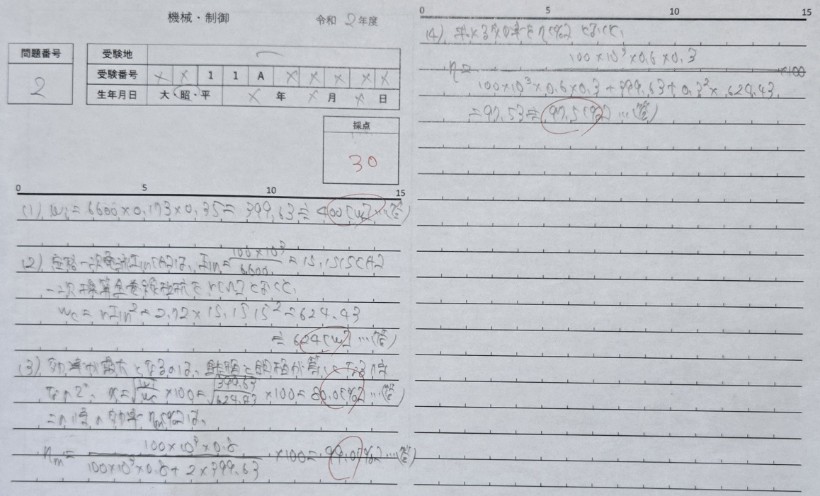 機械・制御
令和 2年度
問題番号
2
受験地
受験番号 × × 1 1 A × × × × ×
生年月日 大・昭・平 × 年 × 月 × 日
採点
30
0 5 10 15
(1) Wi = 6600×0.173×0.35 = 399.63 ≒ 400[W] …(答)
(2) 定格一次電流I1n[A]は、I1n = 100×10³/6600 = 15.1515[A]
一次換算全巻線抵抗をr[Ω]とおくと、
Wc = rI1n² = 2.72×15.1515² = 624.43
≒ 624[W] …(答)
(3) 効率が最大となるのは、鉄損と銅損が等しくなる時
なので、 = √ 399.63/624.43 ×100 = 80.0[%] …(答)
この時の効率ηm[%]は、
ηm = 100×10³×0.8 / 100×10³×0.8 + 2×399.63 ×100 = 99.0[%] …(答)
0 5 10 15
(4) 求める効率をη[%]とおくと、
η = 100×10³×0.6×0.3 / 100×10³×0.6×0.3 + 399.63 + 0.3²×624.43 ×100
= 97.53 ≒ 97.5[%] …(答)